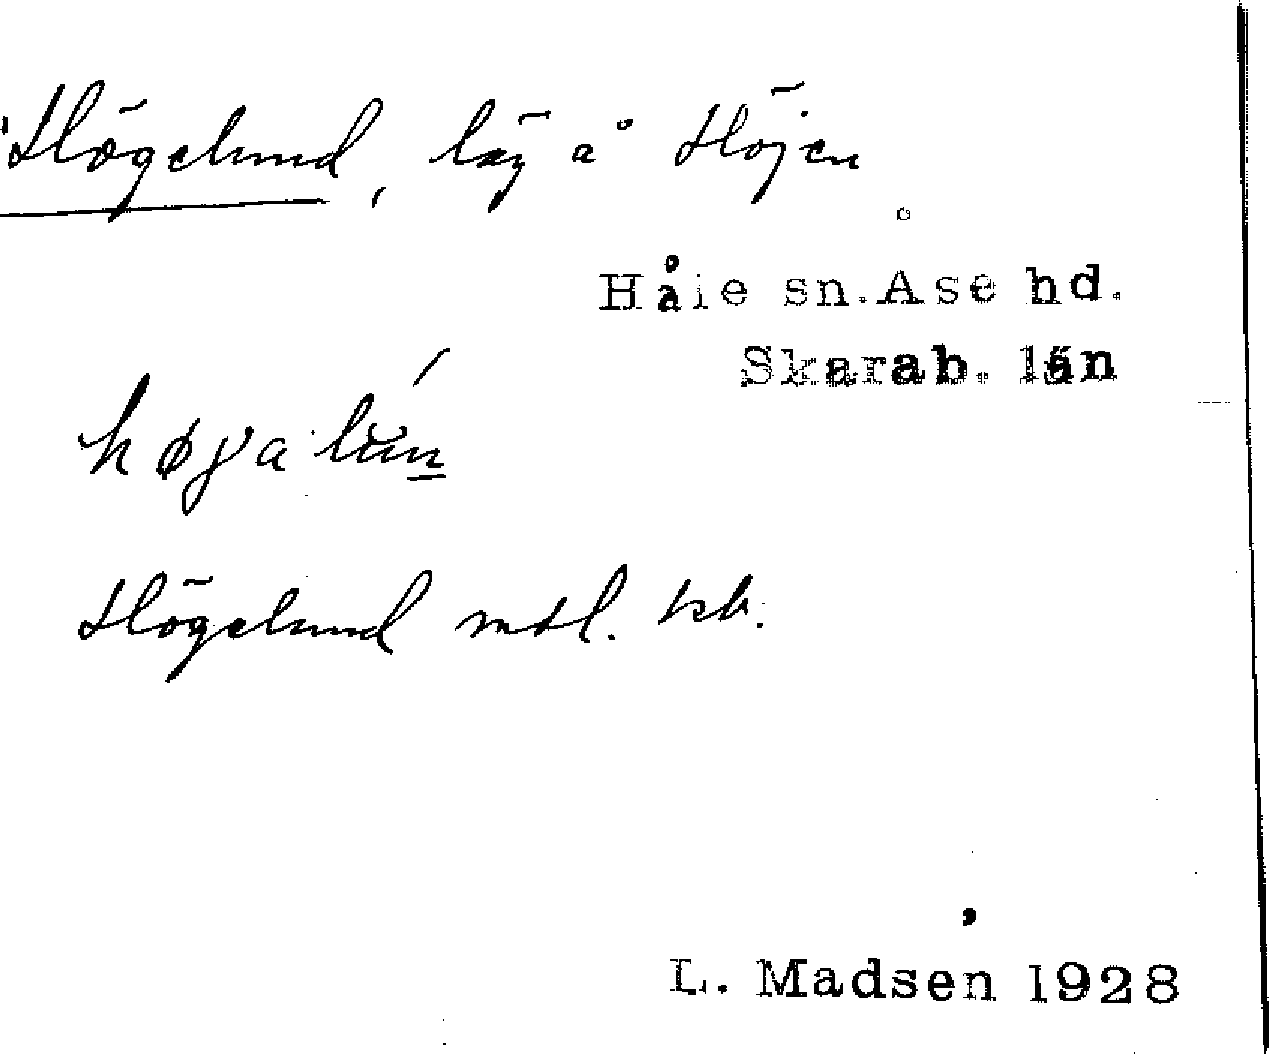 Högelund, läg å Höjen
Håle sn. Åse hd.
Skarab. län
høgalun
Högelund mtl. kb.
L. Madsen 1928